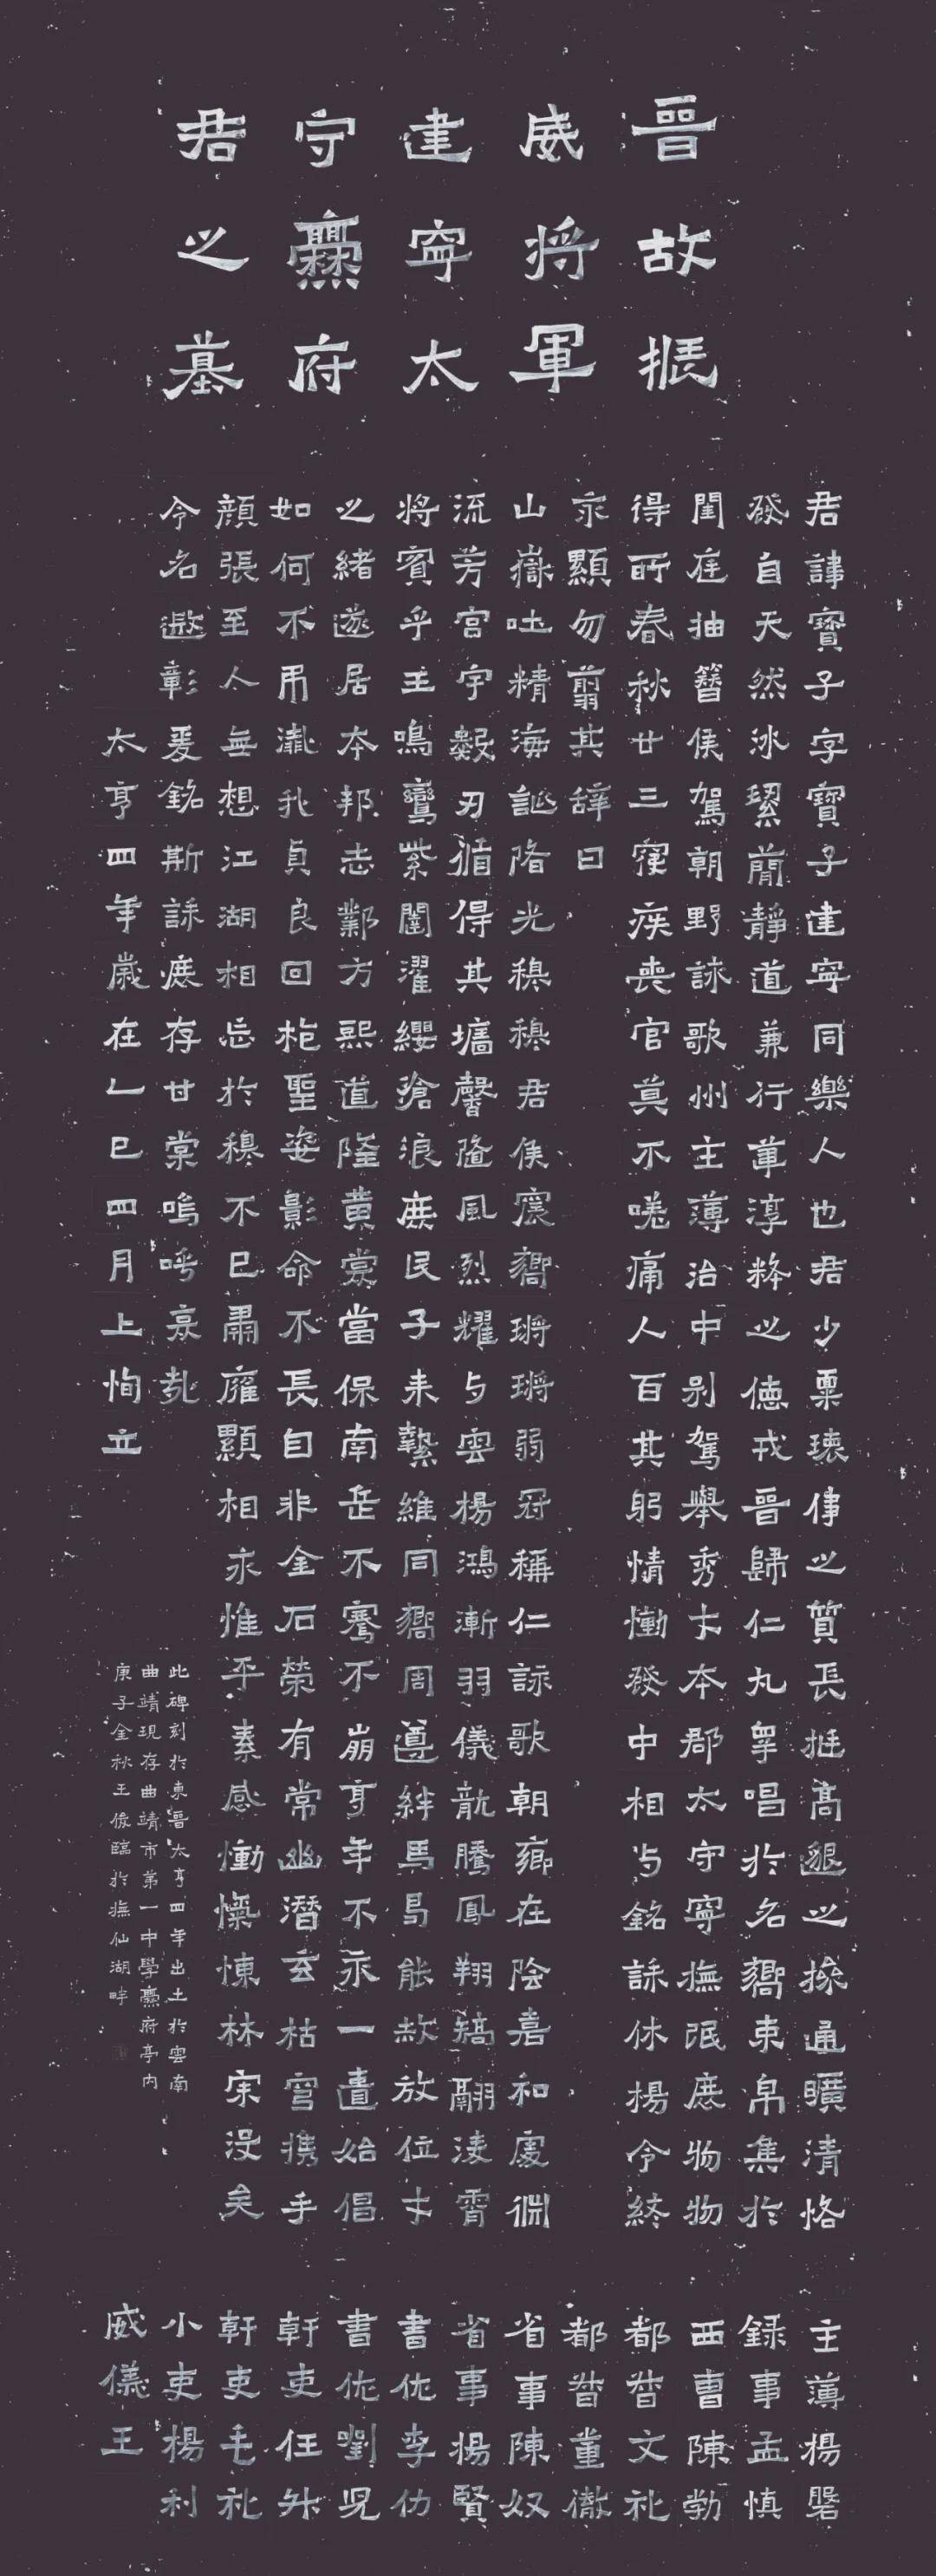 晉故振
威將軍
建寧太
守爨府
君之墓
君諱寶子字寶子建寧同樂人也君少稟瓌偉之質長挺高邈之操通曠清恪
發自天然冰絜簡靜道兼行葦淳粹之德戎晉歸仁九皋唱於名嚮束帛集於
閨庭抽簪俟駕朝野詠歌州主薄治中別駕舉秀才本郡太守寧撫氓庶物物
得所春秋廿三寑疾喪官莫不嗟痛人百其躬情慟發中相与銘誄休揚令終
永顯勿翦其辭曰
山嶽吐精海誕陼光穆穆君侯震嚮鏘鏘弱冠稱仁詠歌朝鄉在陰嘉和處淵
流芳宮宇數刃循得其墻馨隨風烈耀与雲揚鴻漸羽儀龍騰鳳翔矯翮凌霄
將賓乎王鳴鸞紫闥濯纓滄浪庶民子來縶維同嚮周遵絆馬曷能赦放位才
之緒遂居本邦志鄴方熙道隆黃裳當保南岳不騫不崩享年不永一匱始倡
如何不弔殲我貞良回抱聖姿影命不長自非金石榮有常幽潛玄枯宮携手
顏張至人無想江湖相忘於穆不已肅雍顯相永惟平素感慟愾悚林宗沒矣
令名遐彰爰銘斯誄庶存甘棠嗚呼哀哉
太亨四年歲在乙巳四月上恂立
此碑刻於東晉太亨四年出土於雲南
曲靖現存曲靖市第一中學爨府亭内
庚子金秋王俊臨於撫仙湖畔
主薄楊磐
錄事孟慎
西曹陳勃
都督文礼
都督董徹
省事陳奴
省事楊賢
書佐李仂
書佐劉兒
軒吏任升
軒吏毛礼
小吏楊利
威儀王